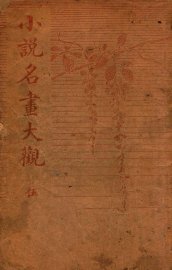 小說名畫大觀
伍